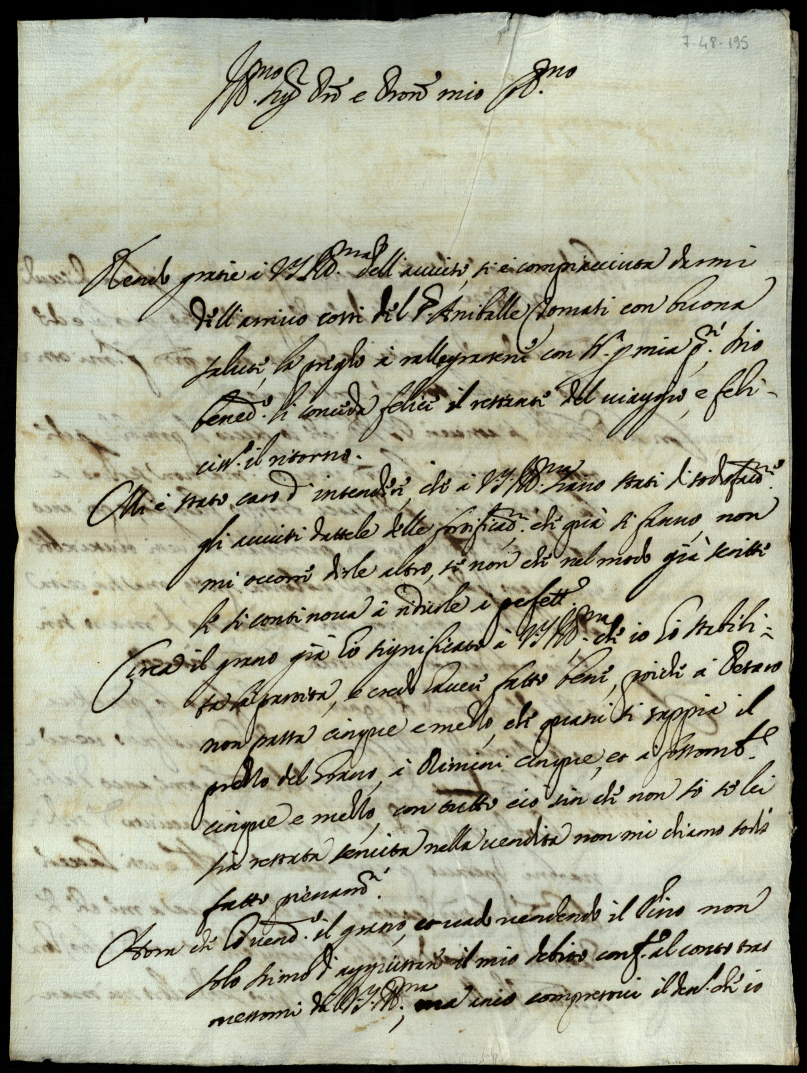 7-48-195
Ill.mo Sig.r e Pron mio Ill.mo
Rendo gratie à V.S. Ill.ma dell'auuiso, si è compiacciuta darmi
dell'arriuo costì del S.r Aniballe Tomati con buona
salute, la priego à rallegrarsene con per mia p.te Dio
bened.o li conceda felice il restante del uiaggio, e feli-
ciss.o il ritorno.
Mi è stato caro d'intendere, che à V.S. Ill.ma siano stati di sodisfatt.ne
gli auuisi dattele delle fortificat.ni che quà si fanno, non
mi occorre dirle altro, se non che nel modo già scritto
le si continoua à ridurle à perfett.e
Circa il grano già hò significato à V.S. Ill.ma che io hò stabili-
ta la partita, e credo hauer fatto bene, poiche à Pesaro
non passa cinque e mezzo, che quasi si sappia il
prezzo del grano, à Rimini cinque, et a Fossomb.e
cinque e mezzo, con tutto cio sin che non sò se lei
sia restata seruita nella vendita non mi chiamo sodis
fatto pienam.te
Hora che hò uend.o il grano, et uado uendendo il Vino non
solo stimo d'aggiustare il mio debito conf.e al conto tras
messomi da V.S. Ill.ma, ma anco che io